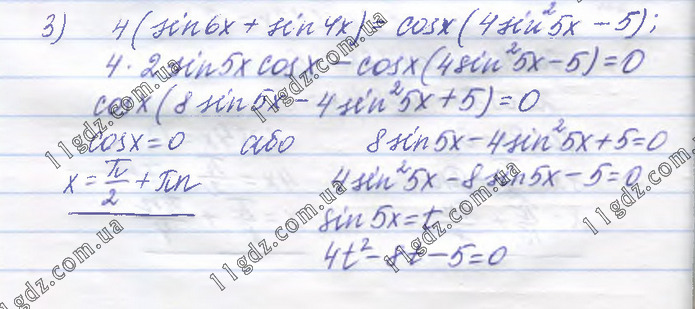 3) 4(sin6x + sin4x) = cosx(4sin²5x - 5);
4·2sin5x cosx - cosx(4sin²5x-5)=0
cosx(8sin5x - 4sin²5x+5)=0
cosx=0 або 8sin5x-4sin²5x+5=0
x=π/2+πn 4sin²5x-8sin5x-5=0
sin5x=t
4t²-8t-5=0
11gdz.com.ua
11gdz.com.ua
11gdz.com.ua
11gdz.com.ua
11gdz.com.ua
11gdz.com.ua
11gdz.com.ua
11gdz.com.ua